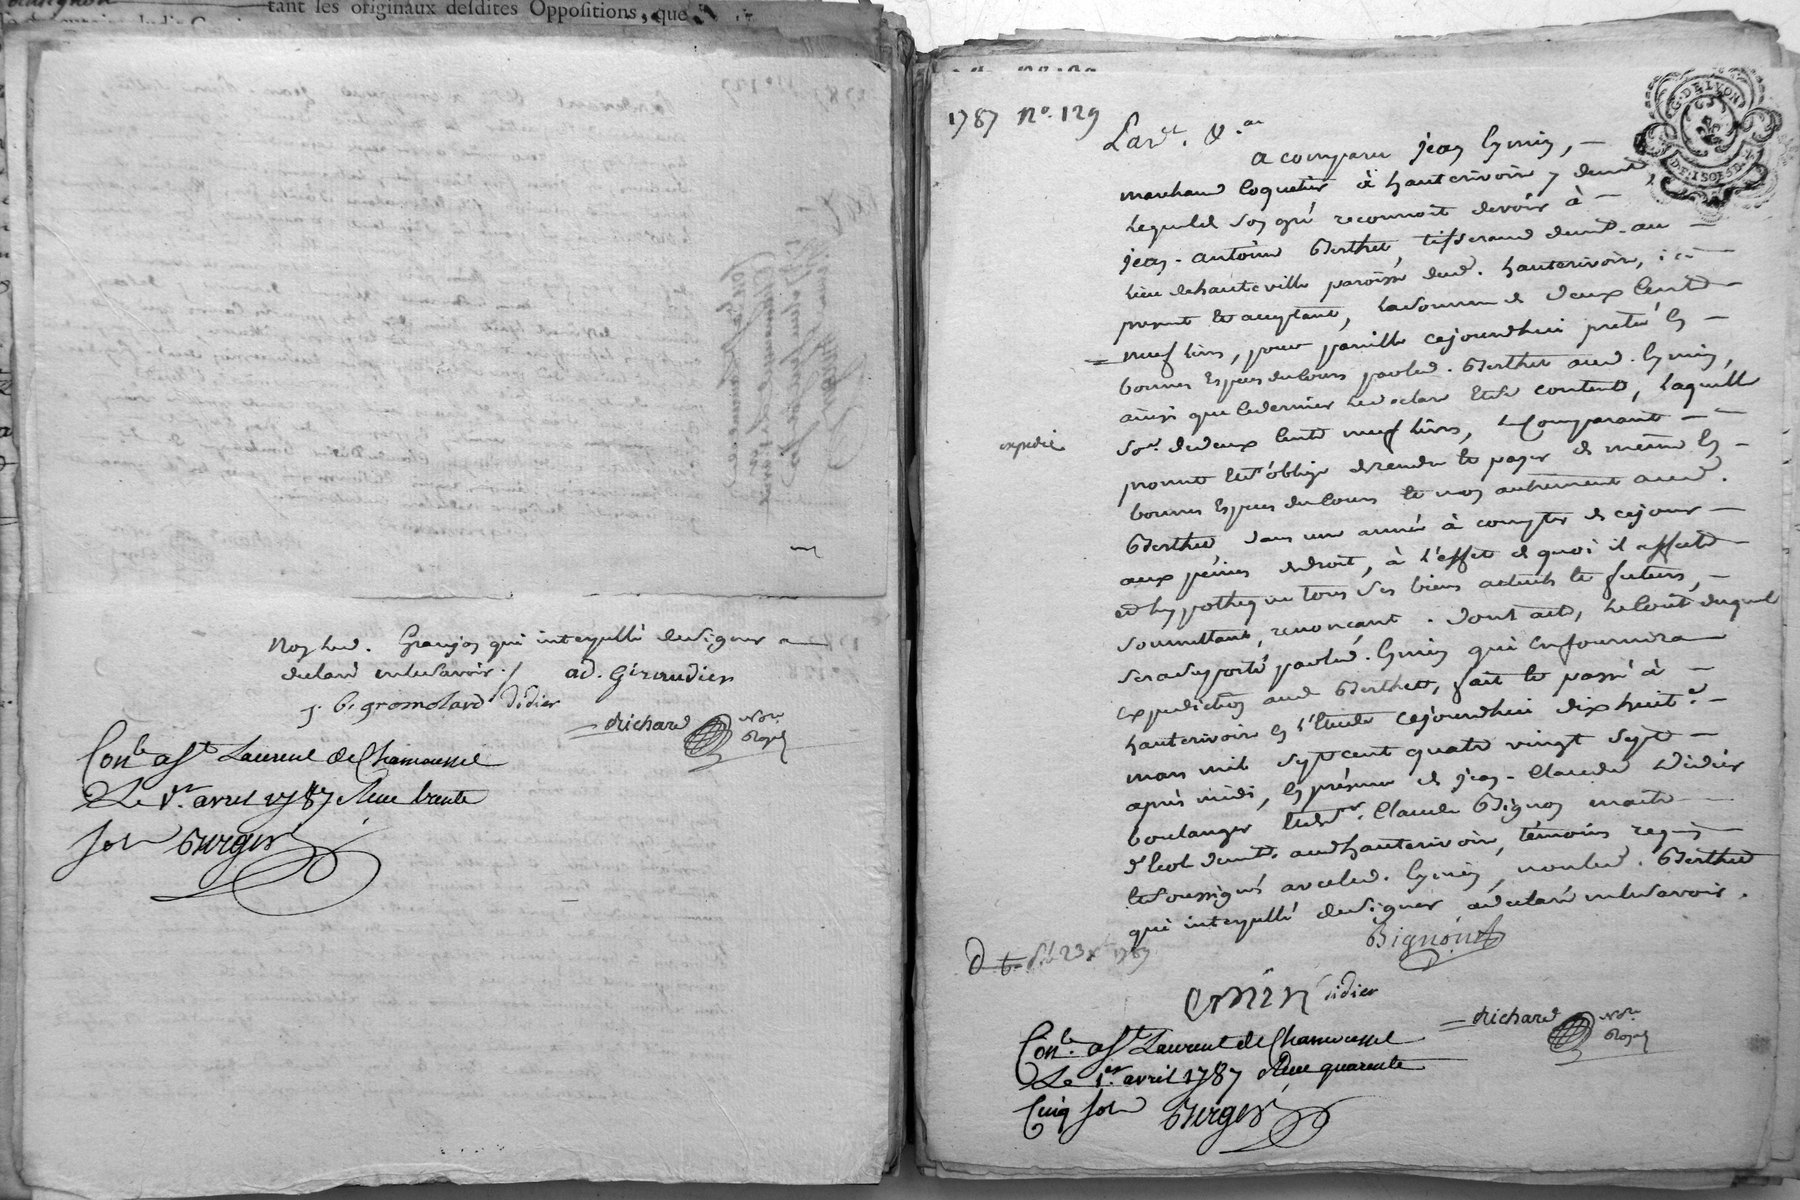 tant les originaux desdites Oppositions, que
non led. Granjon qui interpellé de signer a
declaré ne le savoir ./. ad. Giraudier
j. b. gromolard Didier
Richard Nore. Royal
Conlé a St Laurent de Chamousset
Le 1er. avril 1787 Reçu trente
sols Berger
1787 No. 129
Pardt. &.
a comparu jean
marchand Coquetier à hauterivoire y demt.
lequel de son gré reconnoit devoir à
jean-antoine Berthet tisserand demt. au
lieu de hauteville paroisse dud. hauterivoire, ici
present et acceptant, la somme de deux cents
neuf livres, pour pareille cejourdhui pretée en
bonnes Especes du Cours par led. Berthet aud.
ainsi que ce dernier le declare et s'en contente, laquelle
some. de deux cents neuf livres, le Comparant
promet et s'oblige de rendre et payer de même en
bonnes Especes du Cours et non autrement aud.
Berthet, dans une année à compter de cejour
aux peines de droit, à l'effet de quoi il affecte
et hypotheque tous ses biens actuels et futurs,
soumettant, renonçant. Dont acte, le Coût duquel
sera suporté par led. qui En fournira
expedition aud Berthet, fait et passé à
hauterivoire En l'Etude cejourdhui dix huit
mars mil sept cent quatre vingt sept
après midi, En présence de jean-Claude Didier
boulanger et de sr. Claude Bignon maitre
d'Ecole demts. aud hauterivoire, témoins requis
et soussignés avec led. , non led. Berthet
qui interpellé de signer a declaré ne le savoir.
expedié
Bignon
Didier
Richard Nore. Royal
Conlé. a St Laurent de Chamousset
Le 1er. avril 1787 Reçu quarente
Cinq sols Berger
G. DE LYON